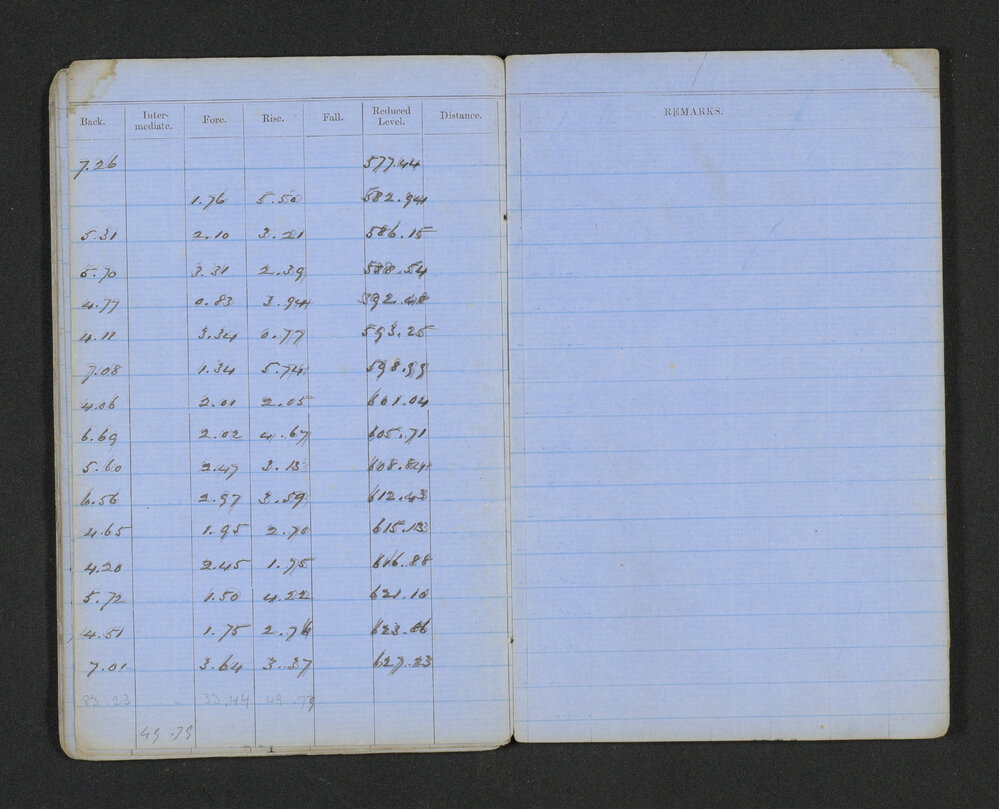 Back. Inter-mediate. Fore. Rise. Fall. Reduced Level. Distance. REMARKS.
7.26 577.44
1.76 5.50 582.94
5.31 2.10 3.21 586.15
5.70 3.31 2.39 588.54
4.77 0.83 3.94 592.48
4.11 3.34 0.77 593.25
7.08 1.34 5.74 598.99
4.06 2.01 2.05 601.04
6.69 2.02 4.67 605.71
5.60 2.47 3.13 608.84
6.56 2.97 3.59 612.43
4.65 1.95 2.70 615.13
4.20 2.45 1.75 616.88
5.72 1.50 4.22 621.10
4.51 1.75 2.76 623.86
7.01 3.64 3.37 627.23
83.23 33.44 49.79
49.79